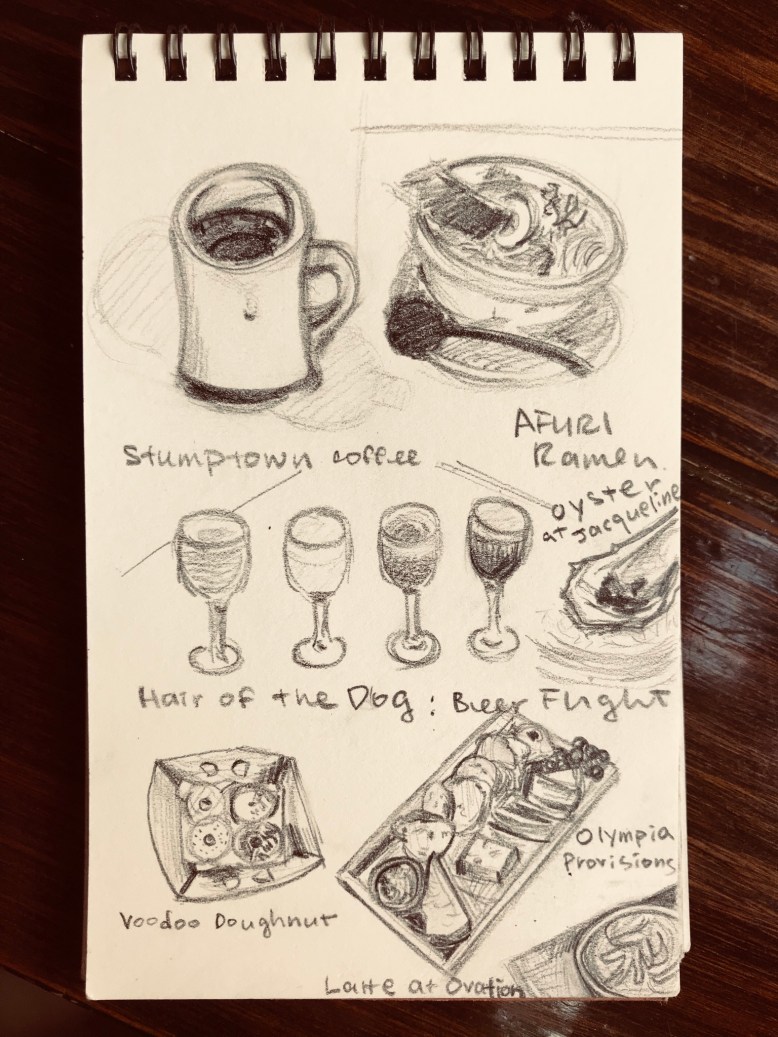 Stumptown coffee
AFURI
Ramen
oyster
at Jacqueline
Hair of the Dog : Beer Flight
Olympia
Provisions
Voodoo Doughnut
Latte at Ovation